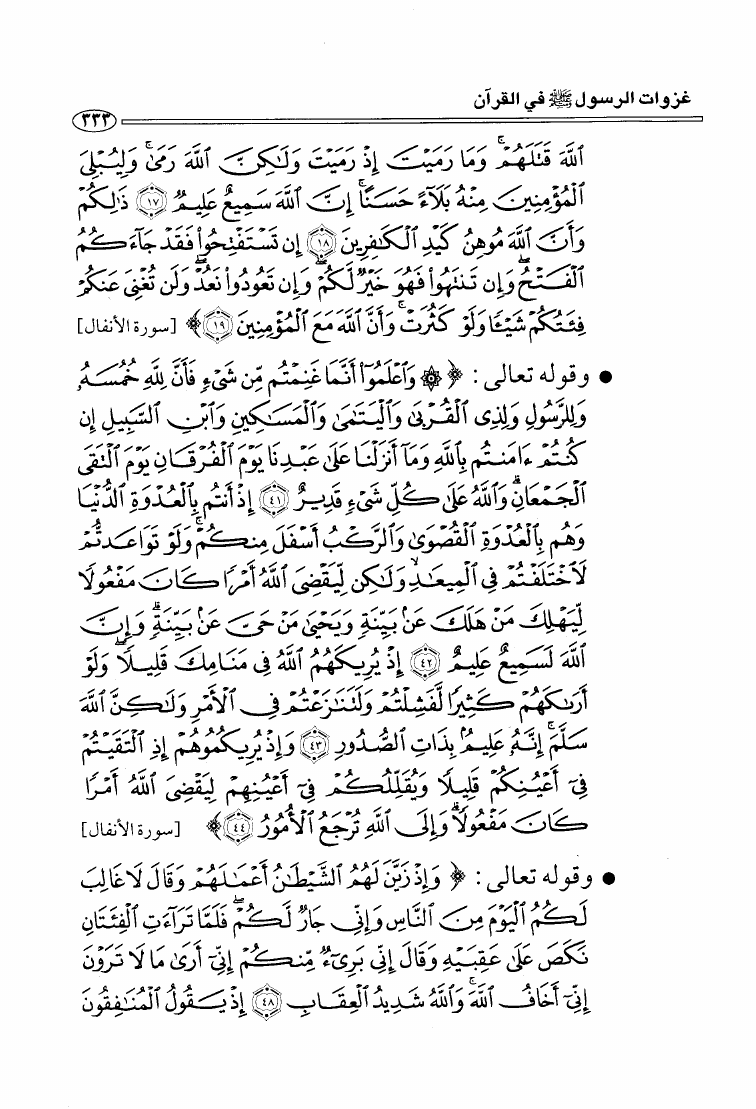 غزوات الرسول ﷺ في القرآن
٣٣٣
ٱللَّهَ قَتَلَهُمْ ۚ وَمَا رَمَيْتَ إِذْ رَمَيْتَ وَلَٰكِنَّ ٱللَّهَ رَمَىٰ ۚ وَلِيُبْلِىَ
ٱلْمُؤْمِنِينَ مِنْهُ بَلَآءً حَسَنًا ۚ إِنَّ ٱللَّهَ سَمِيعٌ عَلِيمٌ ﴿١٧﴾ ذَٰلِكُمْ
وَأَنَّ ٱللَّهَ مُوهِنُ كَيْدِ ٱلْكَٰفِرِينَ ﴿١٨﴾ إِن تَسْتَفْتِحُوا۟ فَقَدْ جَآءَكُمُ
ٱلْفَتْحُ ۖ وَإِن تَنتَهُوا۟ فَهُوَ خَيْرٌ لَّكُمْ ۖ وَإِن تَعُودُوا۟ نَعُدْ وَلَن تُغْنِىَ عَنكُمْ
فِئَتُكُمْ شَيْـًٔا وَلَوْ كَثُرَتْ ۙ وَأَنَّ ٱللَّهَ مَعَ ٱلْمُؤْمِنِينَ ﴿١٩﴾ ﴾ [سورة الأنفال]
● وقوله تعالى : ﴿ ۞ وَٱعْلَمُوٓا۟ أَنَّمَا غَنِمْتُم مِّن شَىْءٍ فَأَنَّ لِلَّهِ خُمُسَهُۥ
وَلِلرَّسُولِ وَلِذِى ٱلْقُرْبَىٰ وَٱلْيَتَٰمَىٰ وَٱلْمَسَٰكِينِ وَٱبْنِ ٱلسَّبِيلِ إِن
كُنتُمْ ءَامَنتُم بِٱللَّهِ وَمَآ أَنزَلْنَا عَلَىٰ عَبْدِنَا يَوْمَ ٱلْفُرْقَانِ يَوْمَ ٱلْتَقَى
ٱلْجَمْعَانِ ۗ وَٱللَّهُ عَلَىٰ كُلِّ شَىْءٍ قَدِيرٌ ﴿٤١﴾ إِذْ أَنتُم بِٱلْعُدْوَةِ ٱلدُّنْيَا
وَهُم بِٱلْعُدْوَةِ ٱلْقُصْوَىٰ وَٱلرَّكْبُ أَسْفَلَ مِنكُمْ ۚ وَلَوْ تَوَاعَدتُّمْ
لَٱخْتَلَفْتُمْ فِى ٱلْمِيعَٰدِ ۙ وَلَٰكِن لِّيَقْضِىَ ٱللَّهُ أَمْرًا كَانَ مَفْعُولًا
لِّيَهْلِكَ مَنْ هَلَكَ عَنۢ بَيِّنَةٍ وَيَحْيَىٰ مَنْ حَىَّ عَنۢ بَيِّنَةٍ ۗ وَإِنَّ
ٱللَّهَ لَسَمِيعٌ عَلِيمٌ ﴿٤٢﴾ إِذْ يُرِيكَهُمُ ٱللَّهُ فِى مَنَامِكَ قَلِيلًا ۖ وَلَوْ
أَرَىٰكَهُمْ كَثِيرًا لَّفَشِلْتُمْ وَلَتَنَٰزَعْتُمْ فِى ٱلْأَمْرِ وَلَٰكِنَّ ٱللَّهَ
سَلَّمَ ۗ إِنَّهُۥ عَلِيمٌۢ بِذَاتِ ٱلصُّدُورِ ﴿٤٣﴾ وَإِذْ يُرِيكُمُوهُمْ إِذِ ٱلْتَقَيْتُمْ
فِىٓ أَعْيُنِكُمْ قَلِيلًا وَيُقَلِّلُكُمْ فِىٓ أَعْيُنِهِمْ لِيَقْضِىَ ٱللَّهُ أَمْرًا
كَانَ مَفْعُولًا ۗ وَإِلَى ٱللَّهِ تُرْجَعُ ٱلْأُمُورُ ﴿٤٤﴾ ﴾ [سورة الأنفال]
● وقوله تعالى : ﴿ وَإِذْ زَيَّنَ لَهُمُ ٱلشَّيْطَٰنُ أَعْمَٰلَهُمْ وَقَالَ لَا غَالِبَ
لَكُمُ ٱلْيَوْمَ مِنَ ٱلنَّاسِ وَإِنِّى جَارٌ لَّكُمْ ۖ فَلَمَّا تَرَآءَتِ ٱلْفِئَتَانِ
نَكَصَ عَلَىٰ عَقِبَيْهِ وَقَالَ إِنِّى بَرِىٓءٌ مِّنكُمْ إِنِّىٓ أَرَىٰ مَا لَا تَرَوْنَ
إِنِّىٓ أَخَافُ ٱللَّهَ ۚ وَٱللَّهُ شَدِيدُ ٱلْعِقَابِ ﴿٤٨﴾ إِذْ يَقُولُ ٱلْمُنَٰفِقُونَ